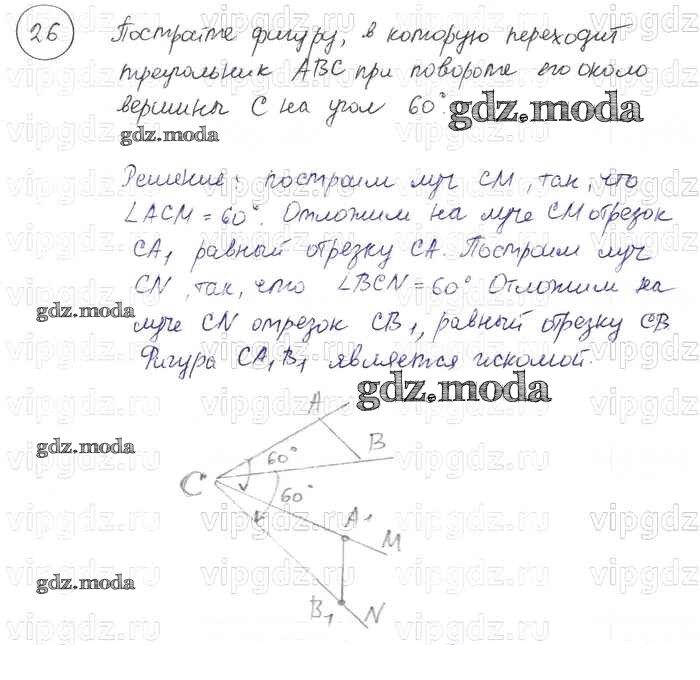 26
Постройте фигуру, в которую переходит
треугольник ABC при повороте его около
вершины C на угол 60°.
gdz.moda
gdz.moda
Решение: построим луч CM, так, что
∠ACM = 60°. Отложим на луче CM отрезок
CA₁ равный отрезку CA. Построим луч
CN, так, что ∠BCN = 60° Отложим на
gdz.moda
луче CN отрезок CB₁, равный отрезку CB
Фигура CA₁B₁ является искомой.
gdz.moda
A
gdz.moda
B
60°
C
60°
A₁
M
gdz.moda
B₁
N
vipgdz.ru